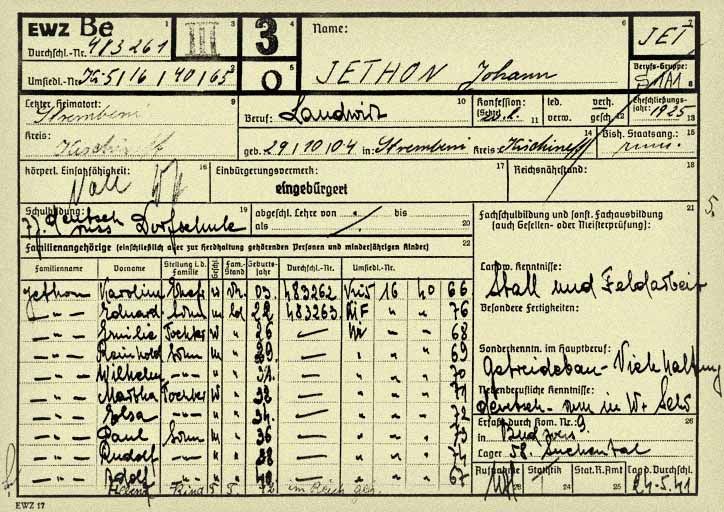 EWZ Be III 3 Name: JET
Durchschl.-Nr. 483261
Umsiedl.-Nr. Ki 5/16/40/65 0 JETHON Johann Berufs-Gruppe:
Letzter Heimatort: Strembeni Beruf: Landwirt Konfession: (Sekte) led. verh. verw. gesch. Eheschließungsjahr: 1925
Kreis: Kischineff geb. 29/10/04 in: Strembeni Kreis: Kischineff Bish. Staatsang.: rum.
körperl. Einsatzfähigkeit: Voll Einbürgerungsvermerk: eingebürgert Reichsnährstand:
Schulbildung: 7 J. deutsch russ Dorfschule abgeschl. Lehre von bis
als
Fachschulbildung und sonst. Fachausbildung (auch Gesellen- oder Meisterprüfung):
Familienangehörige (einschließlich aller zur Herdhaltung gehörenden Personen und minderjährigen Kinder)
Familienname Vorname Stellung i. d. Familie Geschl. Fam.-Stand Geburtsjahr Durchschl.-Nr. Umsiedl.-Nr.
Jethon Karolina Ehefr w vh. 03. 483262 Ki5 16 40 66
— " — Eduard Sohn m ld 22 483263 " " 76
— " — Emilie Tochter w " 26 — " " 68
— " — Reinhold Sohn m " 29 — " " " 69
— " — Wilhelm — " — " " 31. — " " " 70
— " — Martha Tochter w " 32 — " " " 71
— " — — " — " " 34. — " " " 72
— " — Paul Sohn m " 36 — " " " 73
— " — Rudolf — " — " " 38 — " " "
— " — Adolf — " — " " 40 — " " " 67
Kind im Reich geb.
Landw. Kenntnisse:
Stall und Feldarbeit
Besondere Fertigkeiten:
Sonderkenntn. im Hauptberuf:
Getreidebau - Viehhaltung
Nebenberufliche Kenntnisse:
deutsch - rum in W+
Erfaßt durch Kom. Nr.: 9
in
Lager 58.
Aufnahme Statistik Stat.R.Amt Tag d. Durchschl.
24.5.41
EWZ 17